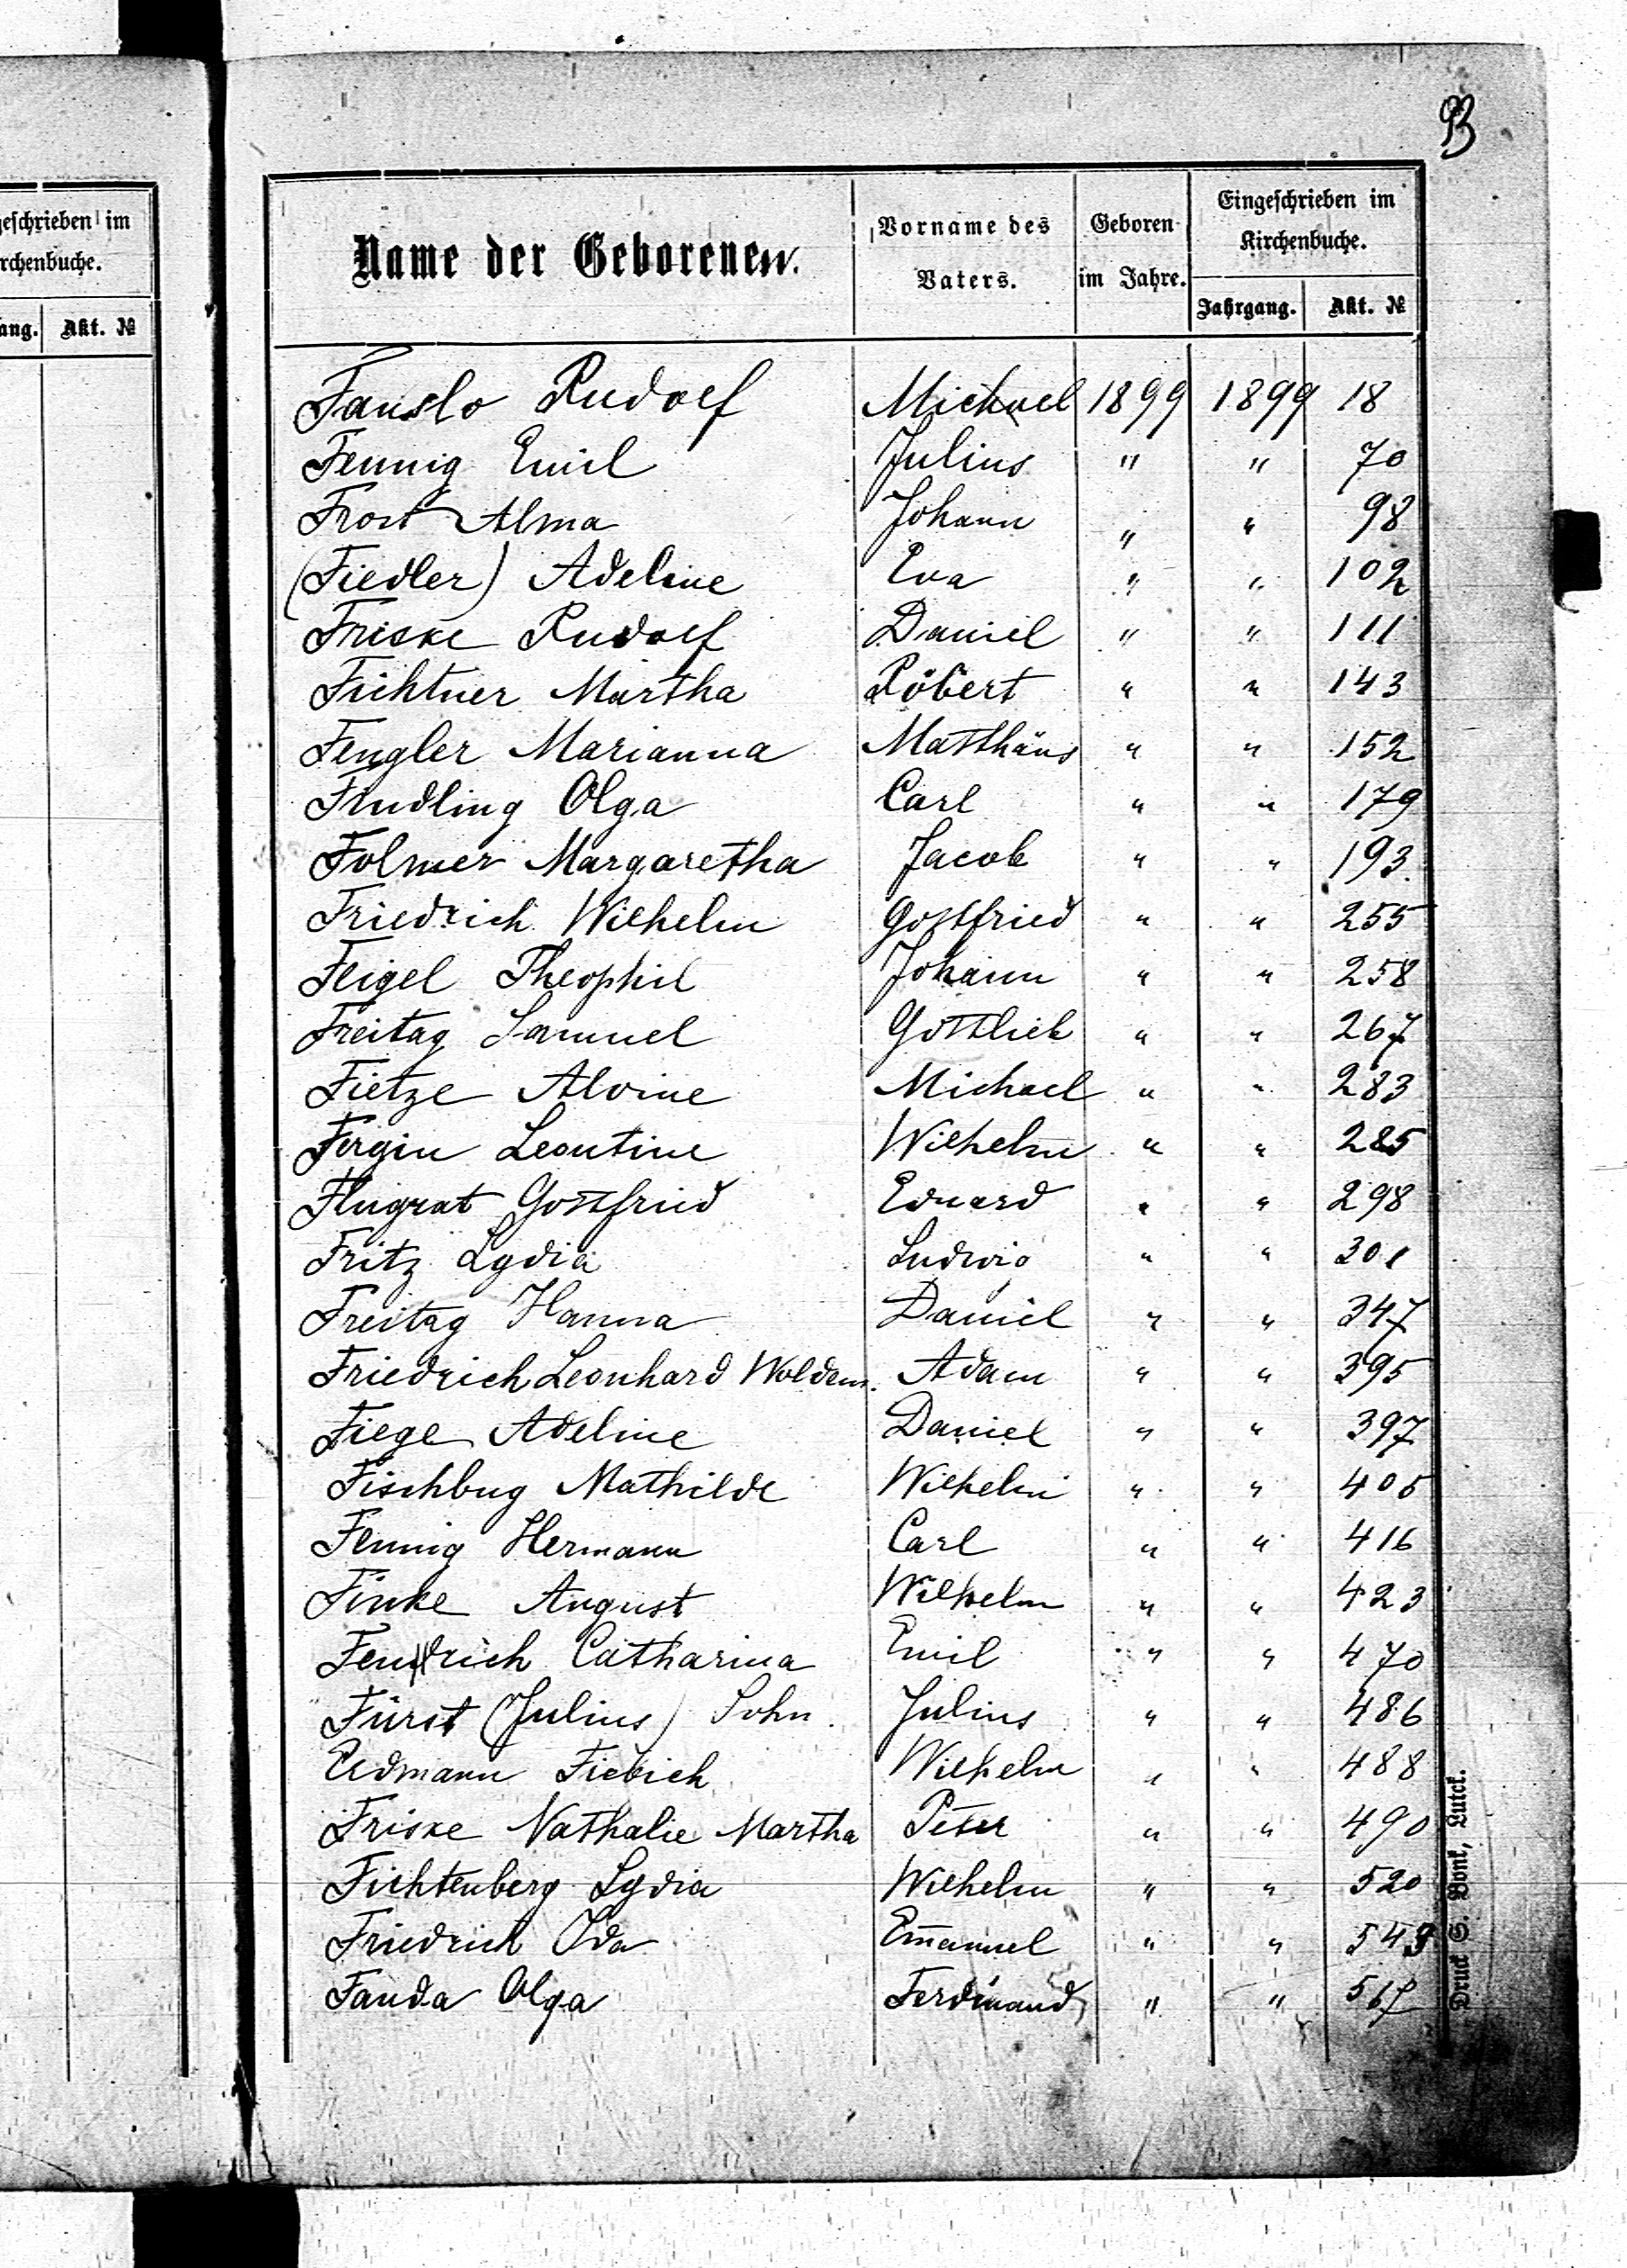 93
geschrieben im
rchenbuche.
ang. Akt. №
Name der Geborenen.
Vorname des Vaters.
Geboren im Jahre.
Eingeschrieben im Kirchenbuche.
Jahrgang. Akt. №
Fauslo Rudolf Michael 1899 1899 18
Fennig Emil Julius " " 70
Frost Alma Johann " " 98
(Fiedler) Adeline Eva " " 102
Friske Rudolf Daniel " " 111
Fichtner Martha Robert " " 143
Fengler Marianna Matthäus " " 152
Findling Olga Carl " " 179
Folmer Margaretha Jacob " " 193
Friedrich Wilhelm Gottfried " " 255
Feigel Theophil Johann " " 258
Freitag Samuel Gottlieb " " 267
Fietze Alvine Michael " " 283
Fergin Leontine Wilhelm " " 285
Flugrat Gottfried Eduard " " 298
Fritz Lydia Ludwig " " 301
Freitag Hanna Daniel " " 347
Friedrich Leonhard Woldem. Adam " " 395
Fiege Adeline Daniel " " 397
Fischbug Mathilde Wilhelm " " 405
Fennig Hermann Carl " " 416
Finke August Wilhelm " " 423
Fendrich Catharina Emil " " 470
Fürst (Julius) Sohn. Julius " " 486
Erdmann Fiebich Wilhelm " " 488
Friske Nathalie Martha Peter " " 490
Fichtenberg Lydia Wilhelm " " 520
Friedrich Ida Em̅anuel " " 543
Fanda Olga Ferdinand " " 567
Druck S. Bonk, Lutck.